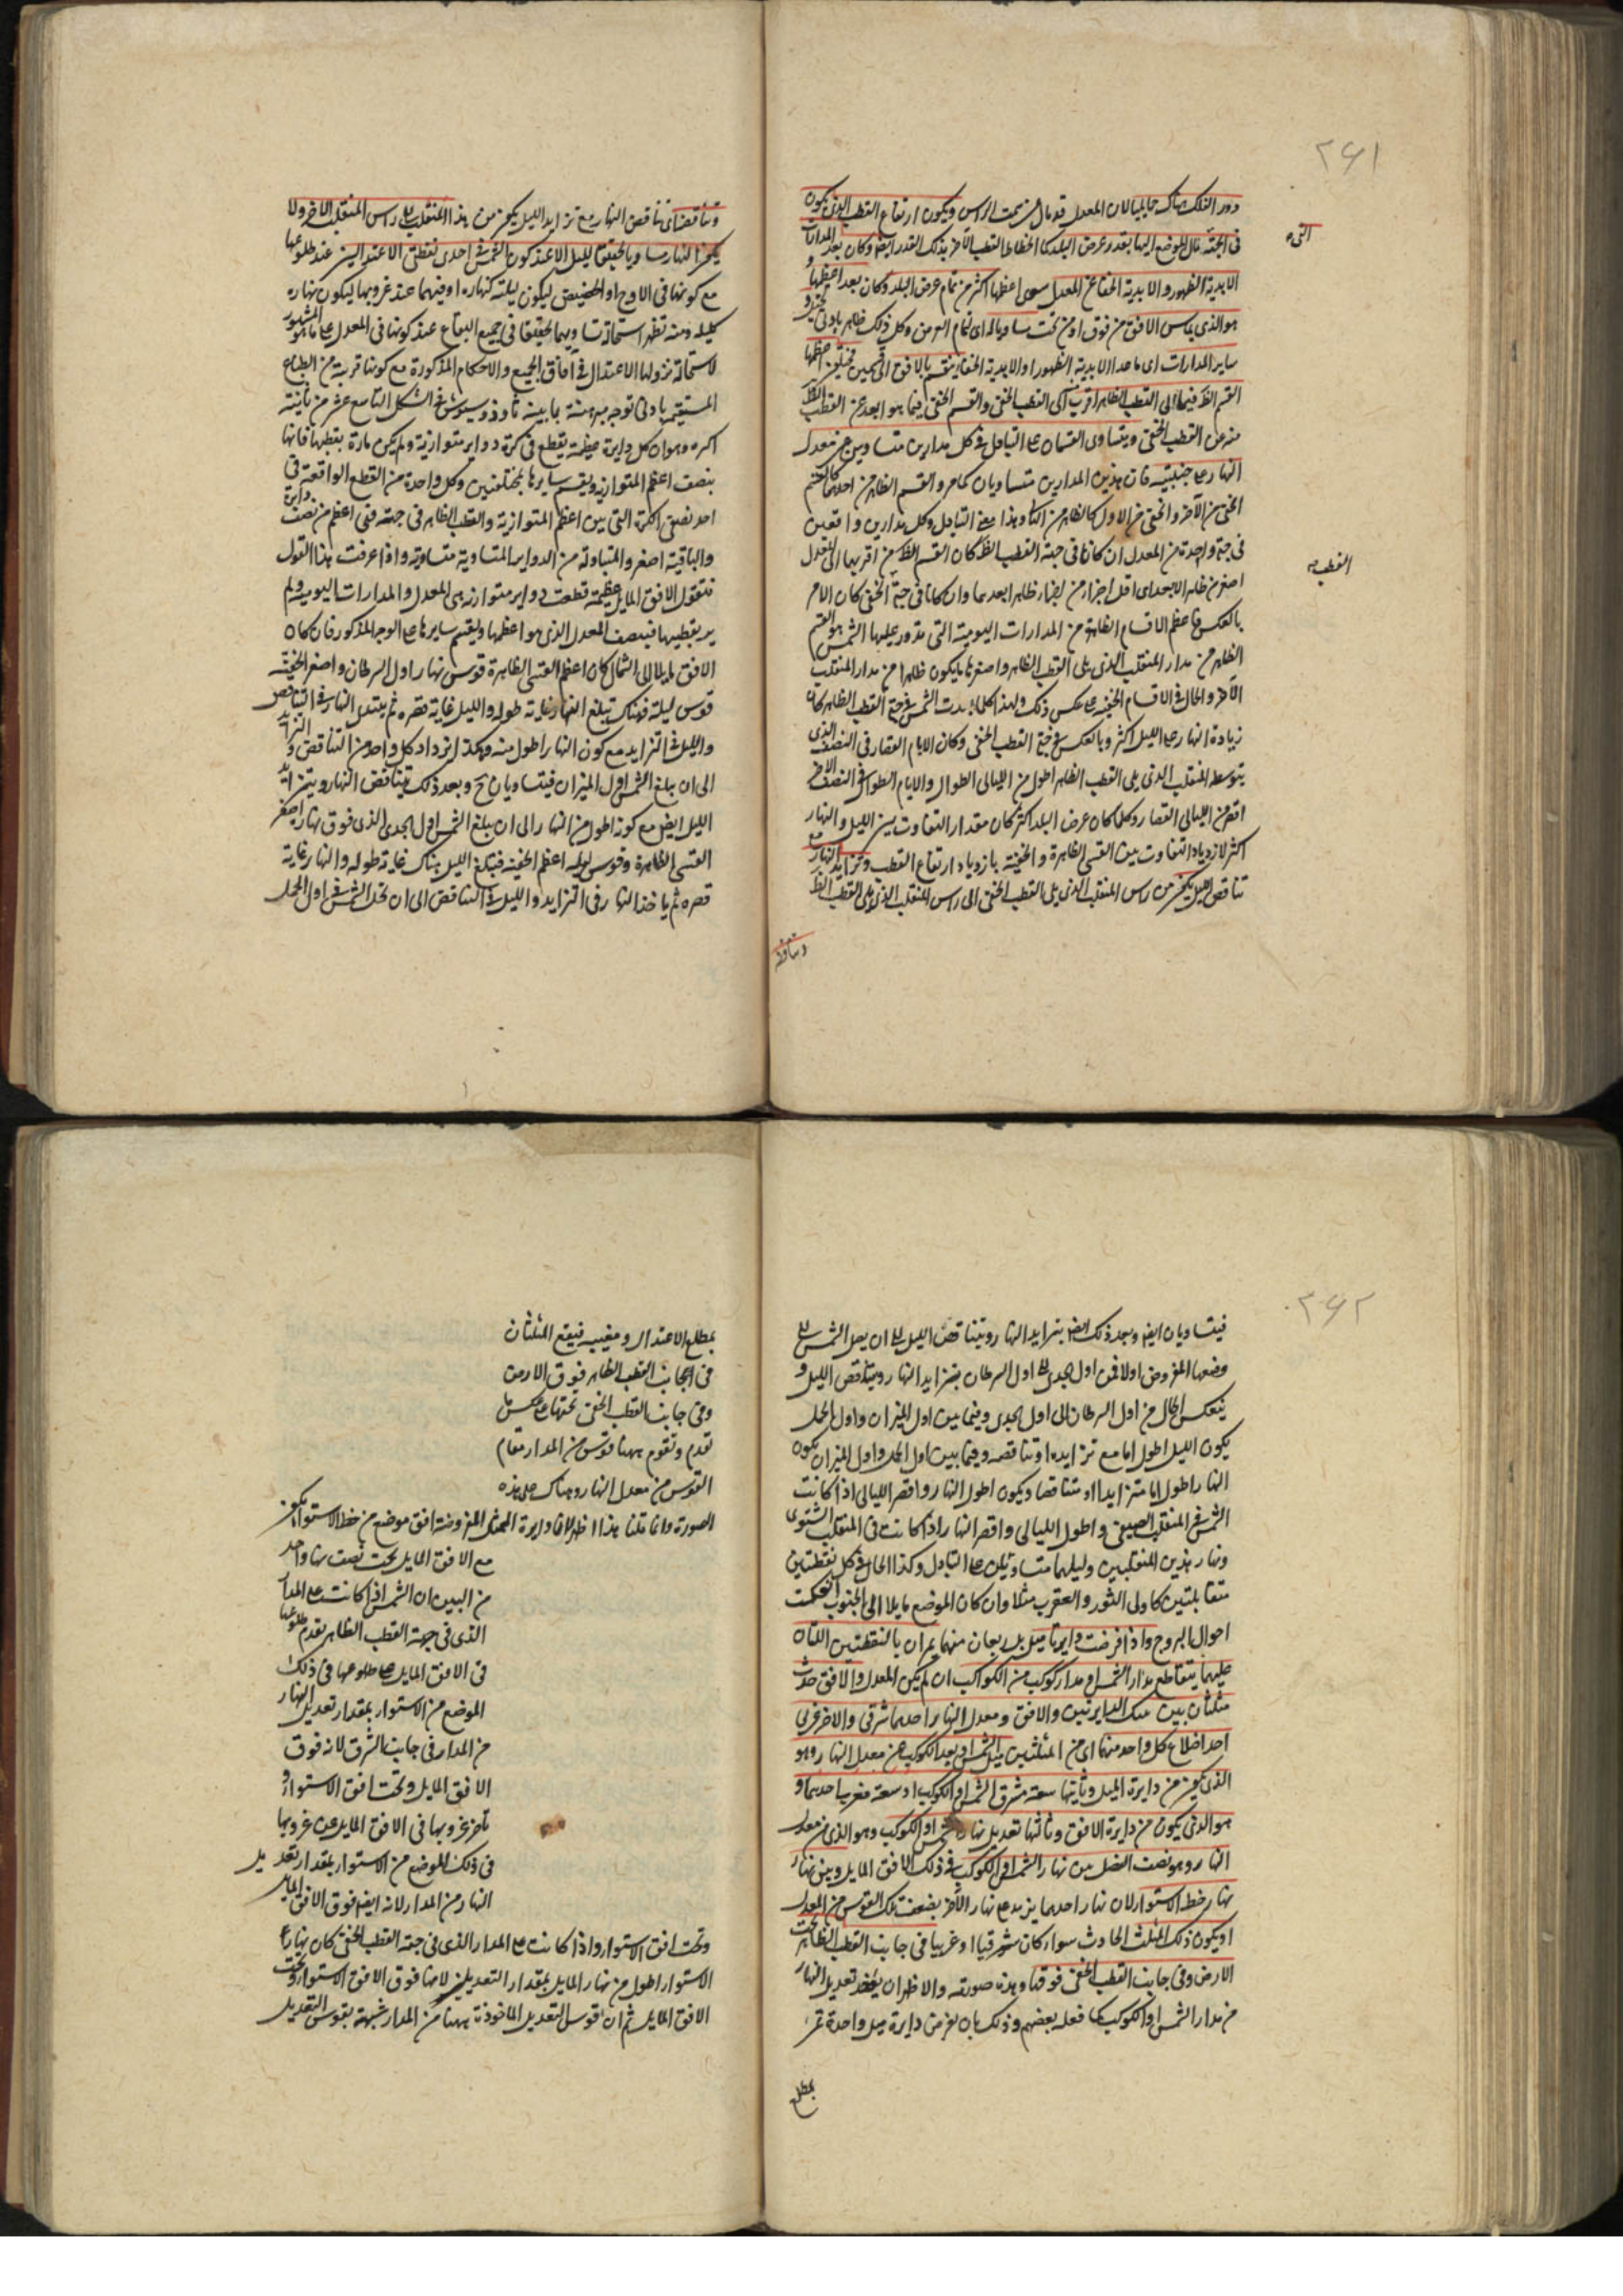 ٢٦١
دور الفلك هناك حمايليا لان المعدل قد مال عن سمت الراس ويكون ارتفاع القطب الذى يكون
التى
فى الجهة مال الموضع اليها بقدر عرض البلد كما انحطاط القطب الآخر بذلك القدر ايضا وكان بعد المدارات
الابدية الظهور والابدية الخفا عن المعدل سوى اعظمها اكثر من تمام عرض البلد وكان بعد اعظمها و
هو الذى يماس الافق من فوق او من تحت مساويا له اى لتمام العرض وكل ذلك ظاهر بادنى تخيل و
ساير المدارات اى ما عدا الابدية الظهور او الابدية الخفا ينقسم بالافق الى قسمين مختلفين اعظمها
القسم الظ فيما الى القطب الظاهر اقرب الى القطب الخفى والقسم الخفى فيما هو ابعد عن القطب الظ
منه عن القطب الخفى ويتساوى القسمان على التبادل فى كل مدارين متساويين عن معدل
النهار على جنبتيه فان هذين المدارين متساويان كما مر والقسم الظاهر من احدهما كالقسم
الخفى من الآخر والخفى من الاول كالظاهر من الثانى وهذا معنى التبادل وكل مدارين واقعين
فى جهة واحدة من المعدل ان كانا فى جهة القطب الظ كان القسم الظ من اقربهما الى المعدل
القطب
اصغر من ظاهر الابعد اى اقل اجزا من اجزا ظاهر ابعدهما وان كانا فى جهة الخفى كان الامر
بالعكس فاعظم الاقسام الظاهرة من المدارات اليومية التى تدور عليها الشمس هو القسم
الظاهر من مدار المنقلب الذى يلى القطب الظاهر واصغرها ما يكون ظاهرا من مدار المنقلب
الآخر والحال فى الاقسام الخفية على عكس ذلك ولهذا كلما بعدت الشمس فى جهة القطب الظاهر كان
زيادة النهار على الليل اكثر وبالعكس فى جهة القطب الخفى وكان الايام القصار فى النصف الذى
يتوسطه المنقلب الذى يلى القطب الظاهر اطول من الليالى الطوال والايام الطوال فى النصف الآخر
اقصر من الليالى القصار وكلما كان عرض البلد اكثر كان مقدار التفاوت بين الليل والنهار
اكثر لازدياد التفاوت بين القسى الظاهرة والخفية بازدياد ارتفاع القطب وتزايد النهار مع
تناقص الليل يكون من راس المنقلب الذى يلى القطب الخفى الى راس المنقلب الذى يلى القطب الظ
وتناقصه
وتناقصه اى تناقص النهار مع تزايد الليل يكون من هذا المنقلب الى راس المنقلب الآخر ولا
يكون النهار مساويا حقيقيا لليل الا عند كون الشمس فى احدى نقطتى الاعتدالين عند طلوعها
مع كونها فى الاوج او الحضيض ليكون ليلته كنهاره او فيهما عند غروبها ليكون نهاره
كليله ومنه تظهر استحالة تساويهما حقيقيا فى جميع البقاع عند كونها فى المعدل على ما هو المشهور
لاستحالة نزولها الاعتدال فى آفاق الجميع والاحكام المذكورة مع كونها قريبة من الطباع
المستقيمة بادنى توجه مبرهنة بما بينه ثاوذوسيوس فى الشكل التاسع عشر من ثانية
اكره وهو ان كل دايرة عظيمة يقطع فى كرة دواير متوازية ولم يكن مارة بقطبها فانها
ينصف اعظم المتوازية ويقسم سايرها بمختلفين وكل واحدة من القطع الواقعة فى
احد نصفى الكرة التى بين اعظم المتوازية والقطب الظاهر فى جهته فهى اعظم من نصف دايرة
والباقية اصغر والمتبادلة من الدواير المتساوية متساوية واذا عرفت هذا القول
فنقول الافق المايل عظيمة قطعت دواير متوازية هى المعدل والمدارات اليومية ولم
يمر بقطبيها فينصف المعدل الذى هو اعظمها ويقسم سايرها على الوجه المذكور فان كان
الافق مايلا الى الشمال كان اعظم القسى الظاهرة قوس نهار اول السرطان واصغر الخفية
قوس ليله فهناك يبلغ النهار غاية طوله والليل غاية قصره ثم يبتدى النهار فى التناقص
والليل فى التزايد مع كون النهار اطول منه وهكذا يزداد كل واحد من التناقص و التزايد
الى ان يبلغ الشمس اول الميزان فيتساويان ح وبعد ذلك يتناقص النهار ويتزايد
الليل ايضا مع كونه اطول من النهار الى ان يبلغ الشمس اول الجدى الذى قوس نهاره اصغر
القسى الظاهرة وقوس ليله اعظم الخفية فيبلغ الليل هناك غاية طوله والنهار غاية
قصره ثم ياخذ النهار فى التزايد والليل فى التناقص الى ان تحل الشمس فى اول الحمل
٢٦٢
فيتساويان ايضا وبعد ذلك ايضا يتزايد النهار ويتناقص الليل الى ان يصل الشمس الى
وضعها المفروض اولا فمن اول الجدى الى اول السرطان يتزايد النهار ويتناقص الليل و
ينعكس الحال من اول السرطان الى اول الجدى وفيما بين اول الميزان واول الحمل
يكون الليل اطول اما مع تزايده او تناقصه وفيما بين اول الحمل واول الميزان يكون
النهار اطول اما متزايدا او متناقصا ويكون اطول النهار واقصر الليالى اذا كانت
الشمس فى المنقلب الصيفى واطول الليالى واقصر النهار اذا كانت فى المنقلب الشتوى
ونهار هذين المنقلبين وليلهما متساويين على التبادل وكذا الحال فى كل نقطتين
متقابلتين كاولى الثور والعقرب مثلا وان كان الموضع مايلا الى الجنوب انعكست
احوال البروج واذا فرضت دايرتا ميل منهما يمران بالنقطتين اللتان
عليهما يتقاطع مدار الشمس او مدار كوكب من الكواكب ان لم يكن المعدل والافق حدث
مثلثان بين تينك الدايرتين والافق ومعدل النهار احدهما شرقى والآخر غربى
احد اضلاع كل واحد منهما اى من المثلثين ميل الشمس او بعد الكوكب عن معدل النهار وهو
الذى يكون من دايرة الميل وثانيها سعة مشرق الشمس او الكوكب او سعة مغرب احدهما و
هو الذى يكون من دايرة الافق وثالثها تعديل نهار الشمس او الكوكب وهو الذى من معدل
النهار وهو نصف الفضل بين نهار الشمس او الكوكب فى ذلك الافق المايل وبين نهار
نهار خط الاستوا لان نهار احدهما يزيد على نهار الآخر بضعف تلك القوس من المعدل
او يكون ذلك المثلث الحادث سوا كان شرقيا او غربيا فى جانب القطب الظاهر تحت
الارض وفى جانب القطب الخفى فوقها وهذه صورته والاظهر ان يوخذ تعديل النهار
من مدار الشمس او الكوكب كما فعله بعضهم وذلك بان يفرض دايرة ميل واحدة تمر
بمطلع
بمطلع الاعتدال ومغيبه فيقع المثلثان
فى الجانب القطب الظاهر فوق الارض
وفى جانب القطب الخفى تحتها على عكس ما
تقدم وتقوم ههنا قوس من المدار مقام
القوس من معدل النهار وهناك على هذه
الصورة وانما قلنا هذا اظهر لان دايرة الميل المفروضة افق موضع من خط الاستوا يكون
مع الافق المايل تحت نصف نهار واحد
من البين ان الشمس اذا كانت على المدار
الذى فى جهة القطب الظاهر تقدم طلوعها
فى الافق المايل على طلوعها فى ذلك
الموضع من الاستوا بمقدار تعديل النهار
من المدار فى جانب الشرق لانه فوق
الافق المايل وتحت افق الاستوا و
تاخر غروبها فى الافق المايل عن غروبها
فى ذلك الموضع من الاستوا بمقدار تعديل
النهار من المدار لانه ايضا فوق الافق المايل
وتحت افق الاستوا واذا كانت على المدار الذى فى جهة القطب الخفى كان نهار
الاستوا اطول من نهار المايل بمقدار التعديلين لانها فوق الافق الاستوا وتحت
الافق المايل ثم ان قوس التعديل الماخوذة ههنا من المدار شبيهة بقوس التعديل